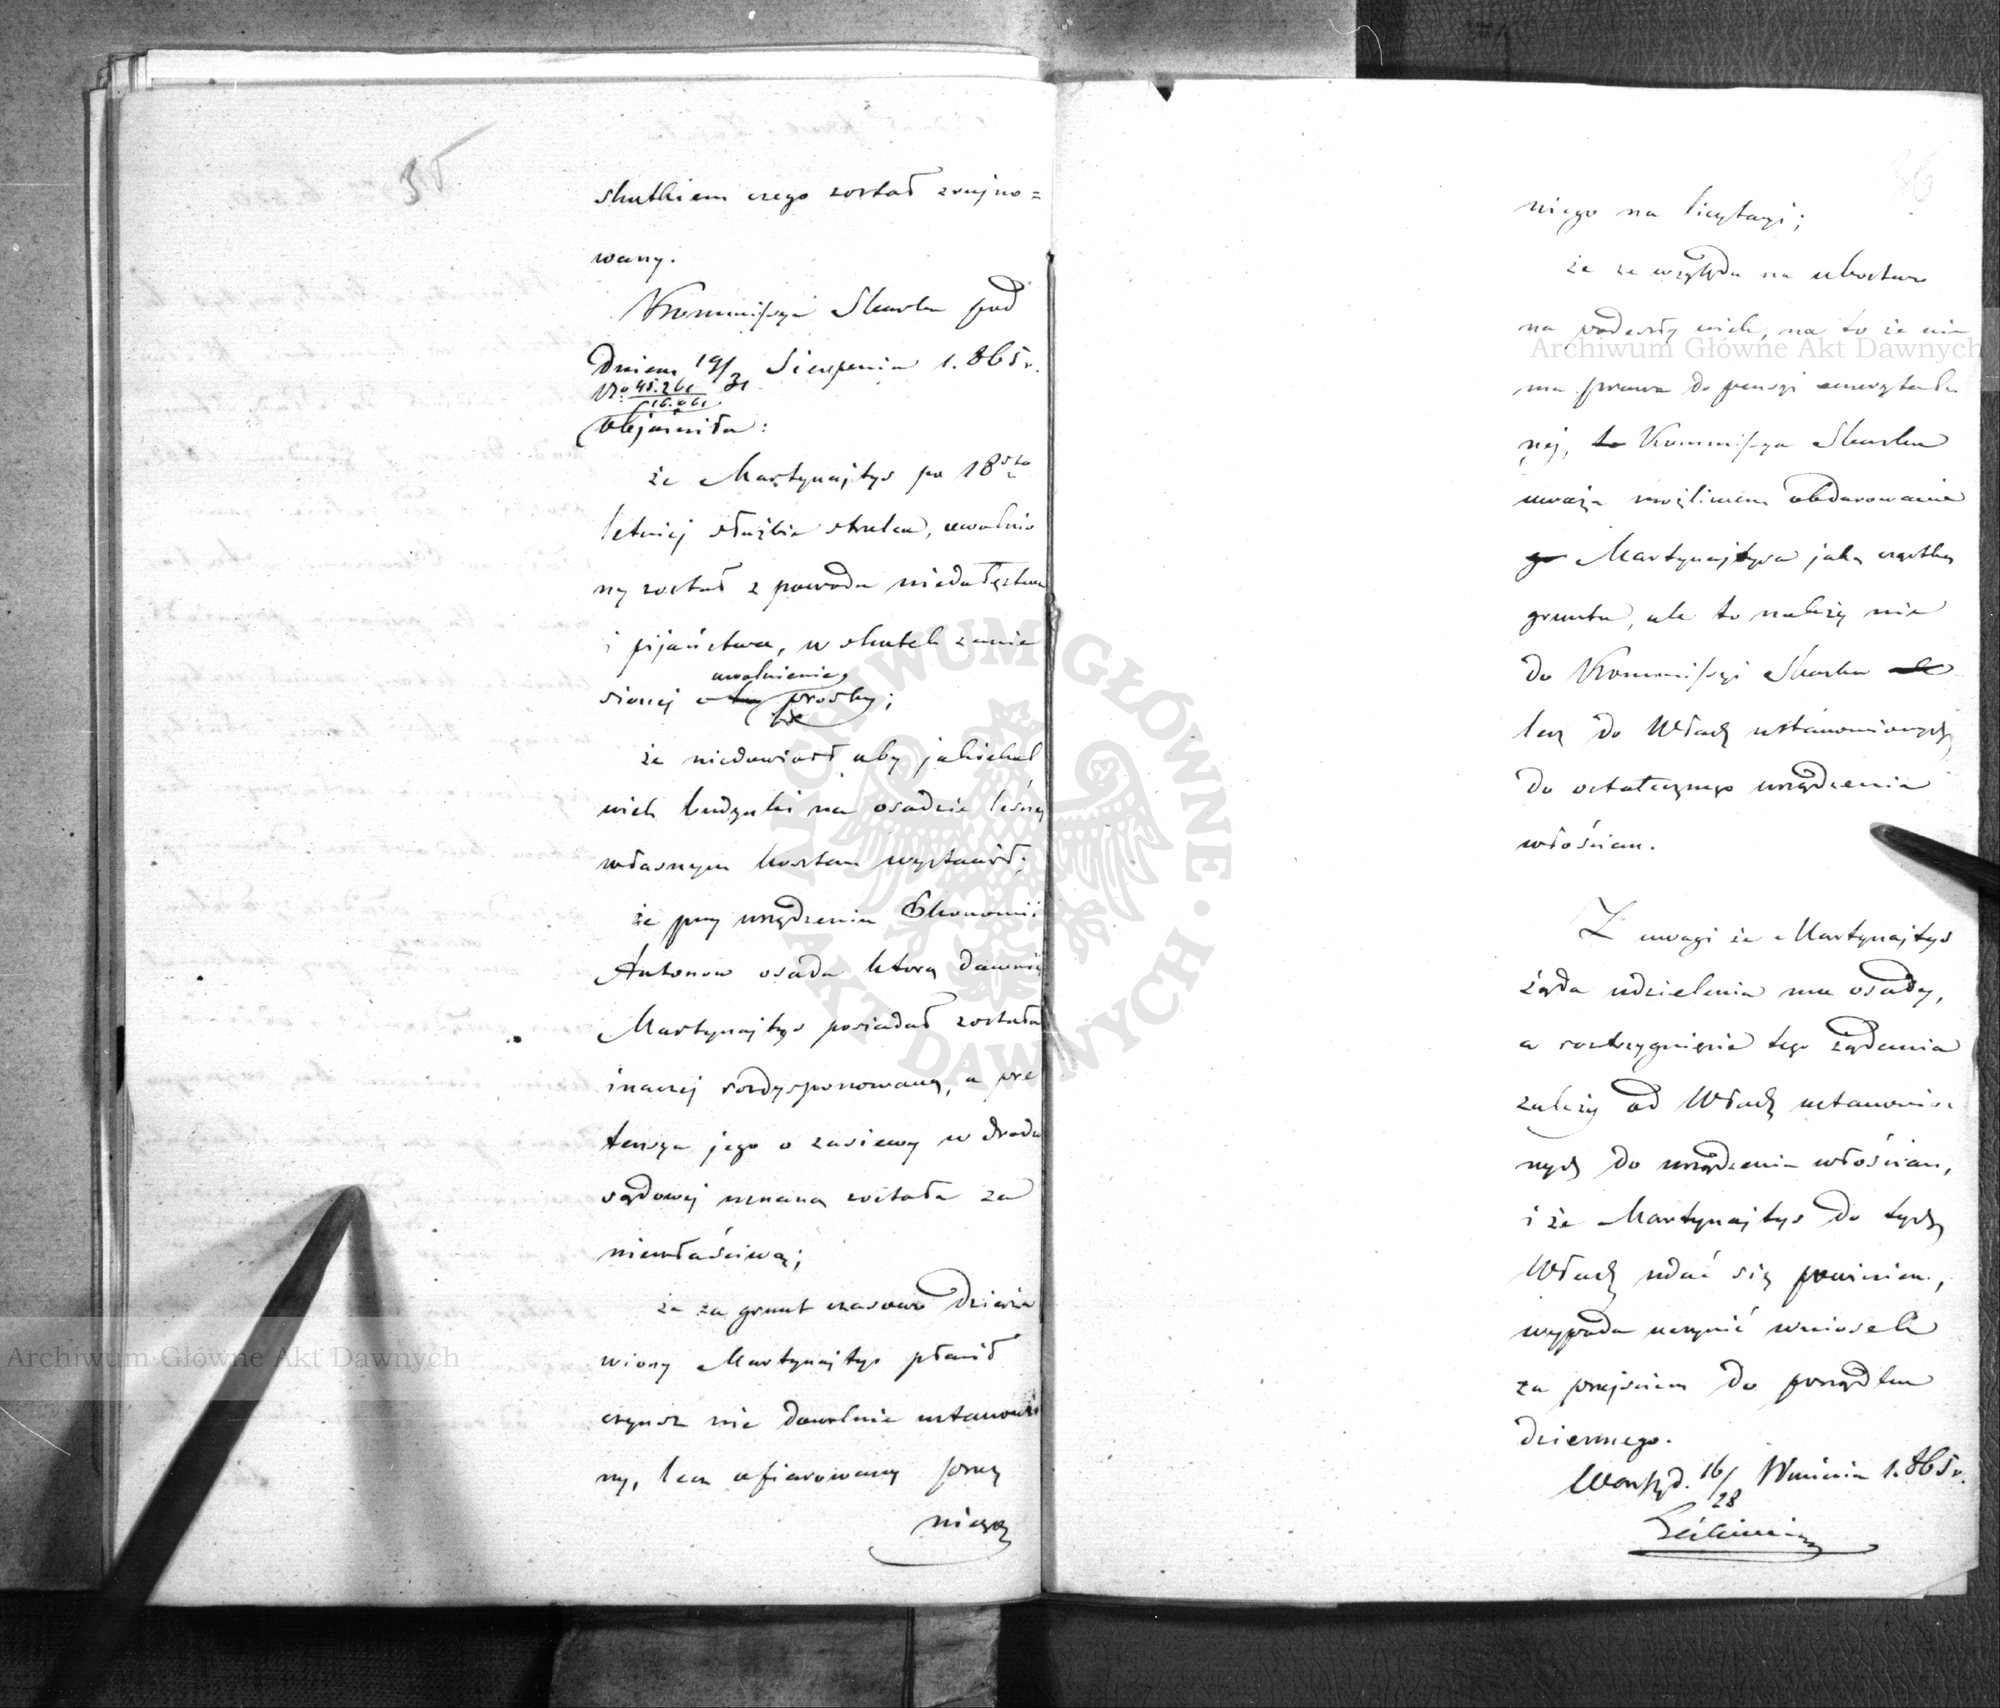 35
skutkiem czego został zrujno=
wany.
Kommissya Skarbu pod
dniem 19/31 Sierpnia 1.865 r.
No 45.261/16.061
objaśniła:
że Martynajtys po 18sto
letniej służbie strzelca, uwolnio
ny został z powodu niedołęztwa
i pijaństwa, w skutek zanie
sionej o uwolnienie prośby;
że niedowiódł aby jakiekol
wiek budynki na osadzie leśnej
własnym kosztem wystawił;
że przy urządzeniu Ekonomii
Antonow osada którą dawniej
Martynajtys posiadał została
inaczej rozdysponowaną, a pre
tensya jego o zasiewy w drodze
sądowej uznaną została za
niewłaściwą;
że za grunt czasowo dzierża
wiony Martynajtys płacił
czynsz nie dowolnie ustanowio
ny, lecz ofiarowany przez
niego
36
niego na licytacyi;
że ze względu na ubóstwo
na podeszły wiek, na to że nie
ma prawa do pensyi emerytal
nej, to Kommissya Skarbu
uważa możliwem obdarowanie
go Martynajtysa jaką cząstką
gruntu, ale to należy nie
do Kommissyi Skarbu
lecz do Władz ustanowionych
do ostatecznego urządzenia
włościan.
Z uwagi że Martynajtys
żąda udzielenia mu osady,
a rozstrzygnięcie tego żądania
zależy od Władz ustanowio
nych do urządzenia włościan,
i że Martynajtys do tych
Władz udać się powinien,
wypada uczynić wniosek
za przejściem do porządku
dziennego.
Warsz. d. 16/28 Września 1.865 r.
Archiwum Główne Akt Dawnych
Archiwum Główne Akt Dawnych
ARCHIWUM GŁÓWNE
AKT DAWNYCH